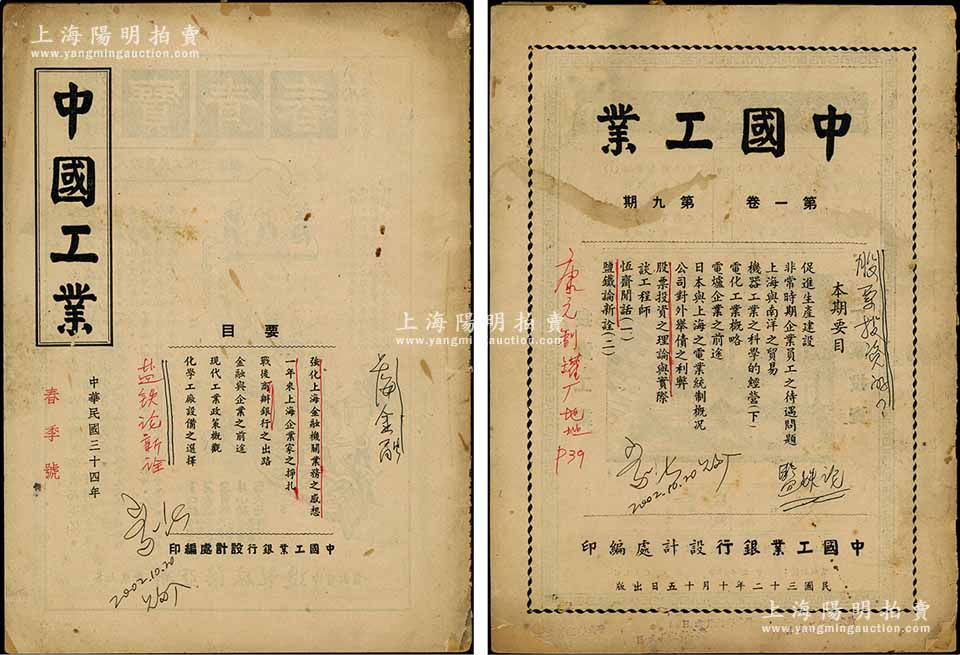 上海陽明拍賣
www.yangmingauction.com
中國工業
要目
強化上海金融機關業務之感想
一年來上海企業家之掙扎
戰後商辦銀行之出路
金融與企業之前途
現代工業政策概觀
化學工廠設備之選擇
盐铁论新诠
中華民國三十四年
春季號
2002.10.20
中國工業銀行設計處編印
上海陽明拍賣
www.yangmingauction.com
上海陽明拍賣
www.yangmingauction.com
中國工業
第一卷 第九期
本期要目
促進生產建設
非常時期企業員工之待遇問題
上海與南洋之貿易
機器工業之科學的經營(下)
電化工業概略
電爐企業之前途
日本與上海之電業統制概況
公司對外舉債之利弊
股票投資之理論與實際
談工程師
恆齋閒話(一)
鹽鐵論新詮(二)
康元制罐厂地址
P39
2002.10.20
中國工業銀行設計處編印
民國三十二年十月十五日出版
上海陽明拍賣
www.yangmingauction.com